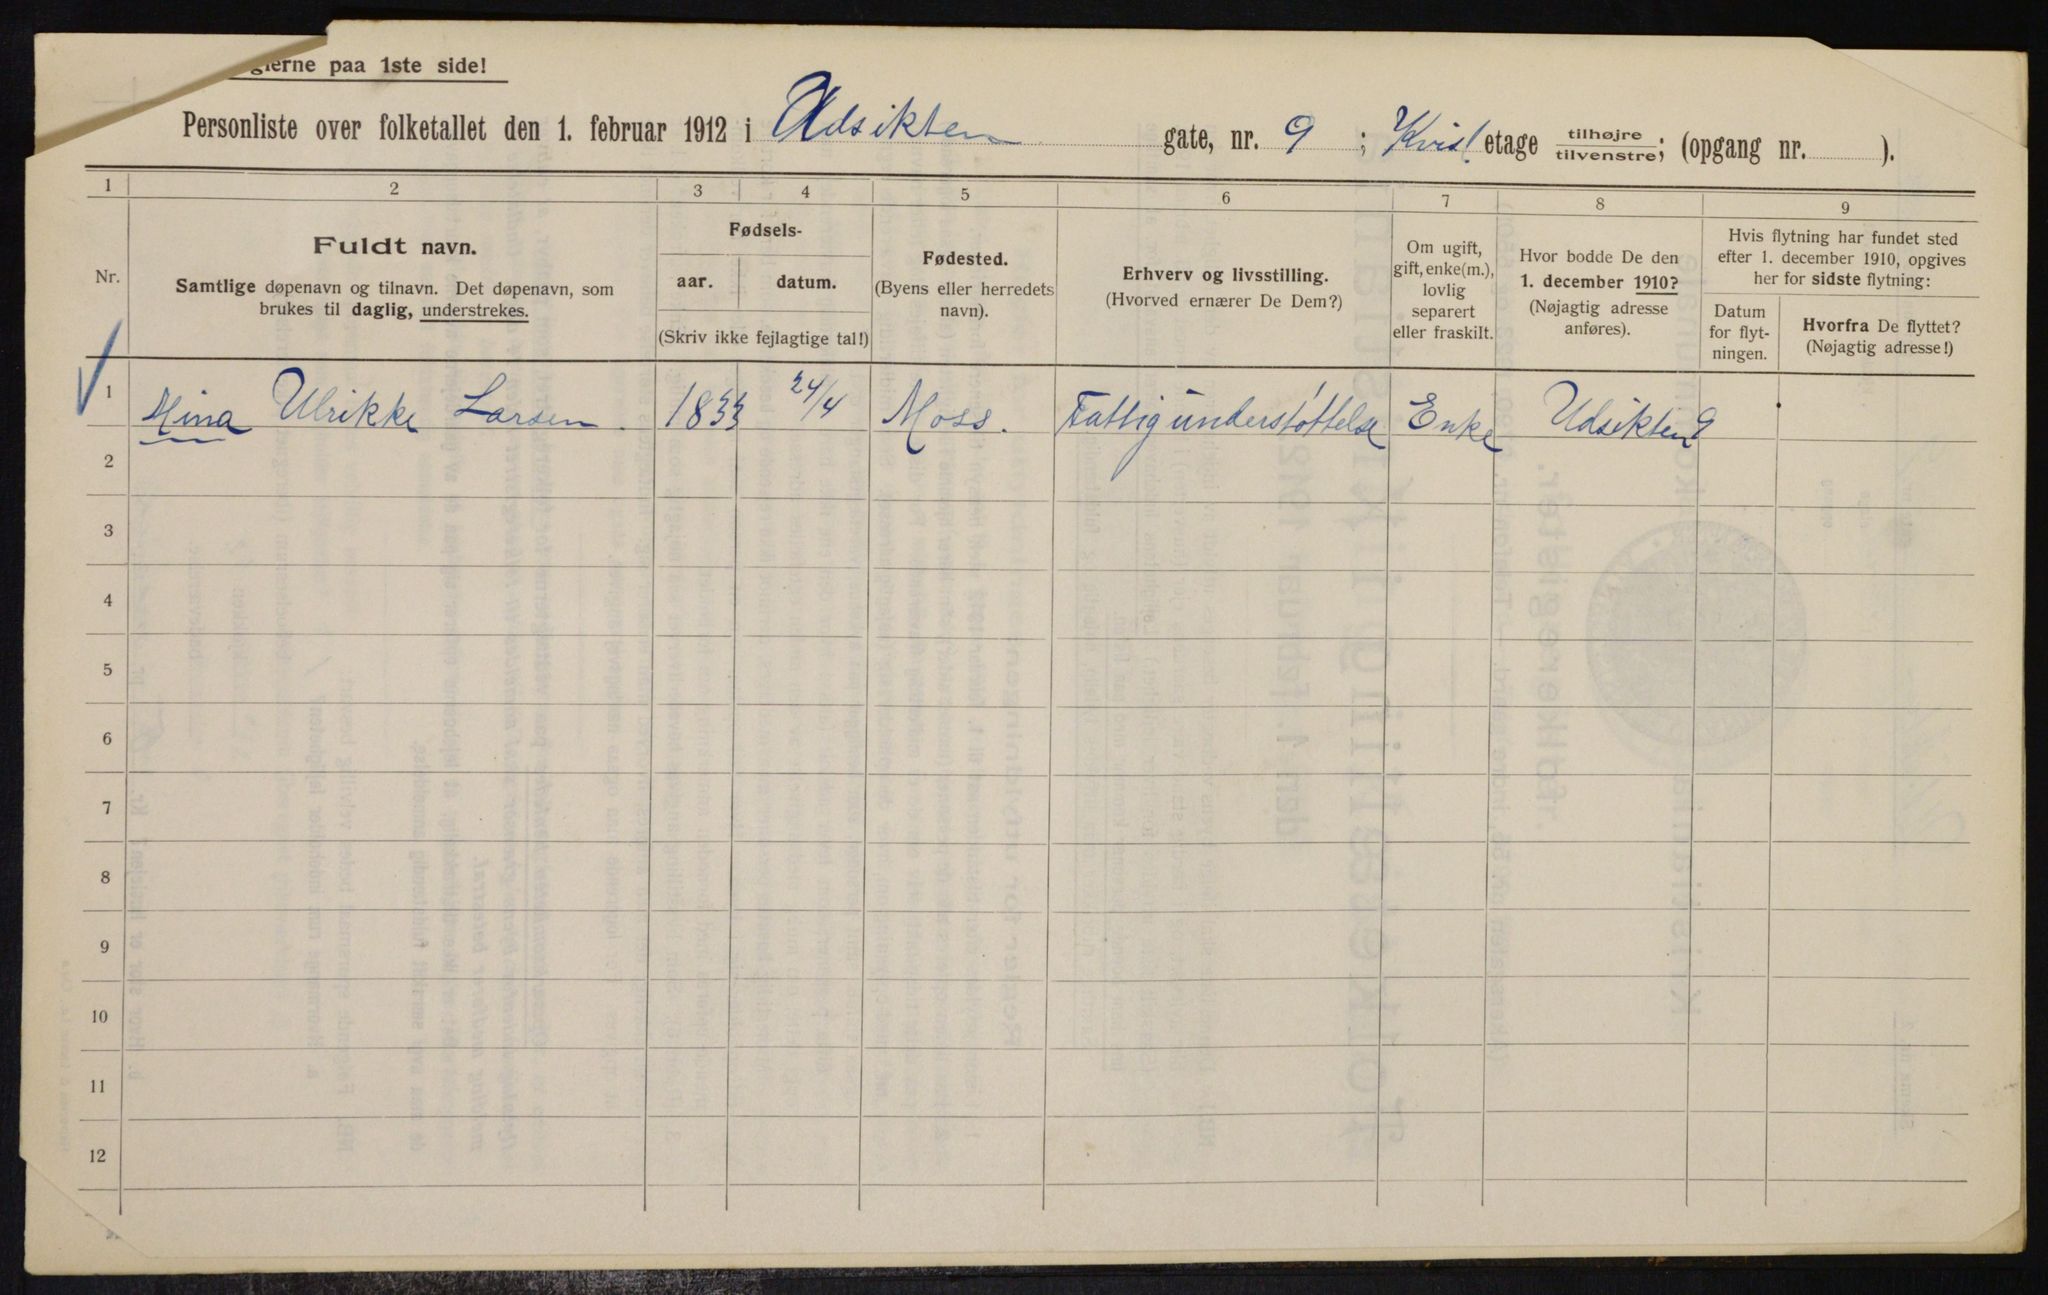 glerne paa 1ste side!
Personliste over folketallet den 1. februar 1912 i Udsikten gate, nr. 9 ; Kvist etage tilhøjre/tilvenstre; (opgang nr. ).
1 2 3 4 5 6 7 8 9
Nr.
Fuldt navn.
Samtlige døpenavn og tilnavn. Det døpenavn, som
brukes til daglig, understrekes.
Fødsels-
aar. datum.
(Skriv ikke fejlagtige tal!)
Fødested.
(Byens eller herredets
navn).
Erhverv og livsstilling.
(Hvorved ernærer De Dem?)
Om ugift,
gift, enke(m.),
lovlig
separert
eller fraskilt.
Hvor bodde De den
1. december 1910?
(Nøjagtig adresse
anføres).
Hvis flytning har fundet sted
efter 1. december 1910, opgives
her for sidste flytning:
Datum
for flyt-
ningen.
Hvorfra De flyttet?
(Nøjagtig adresse!)
1 Mina Ulrikke Larsen. 1833 24/4 Moss. Fattigunderstøttelse Enke Udsikten 9
2
3
4
5
6
7
8
9
10
11
12